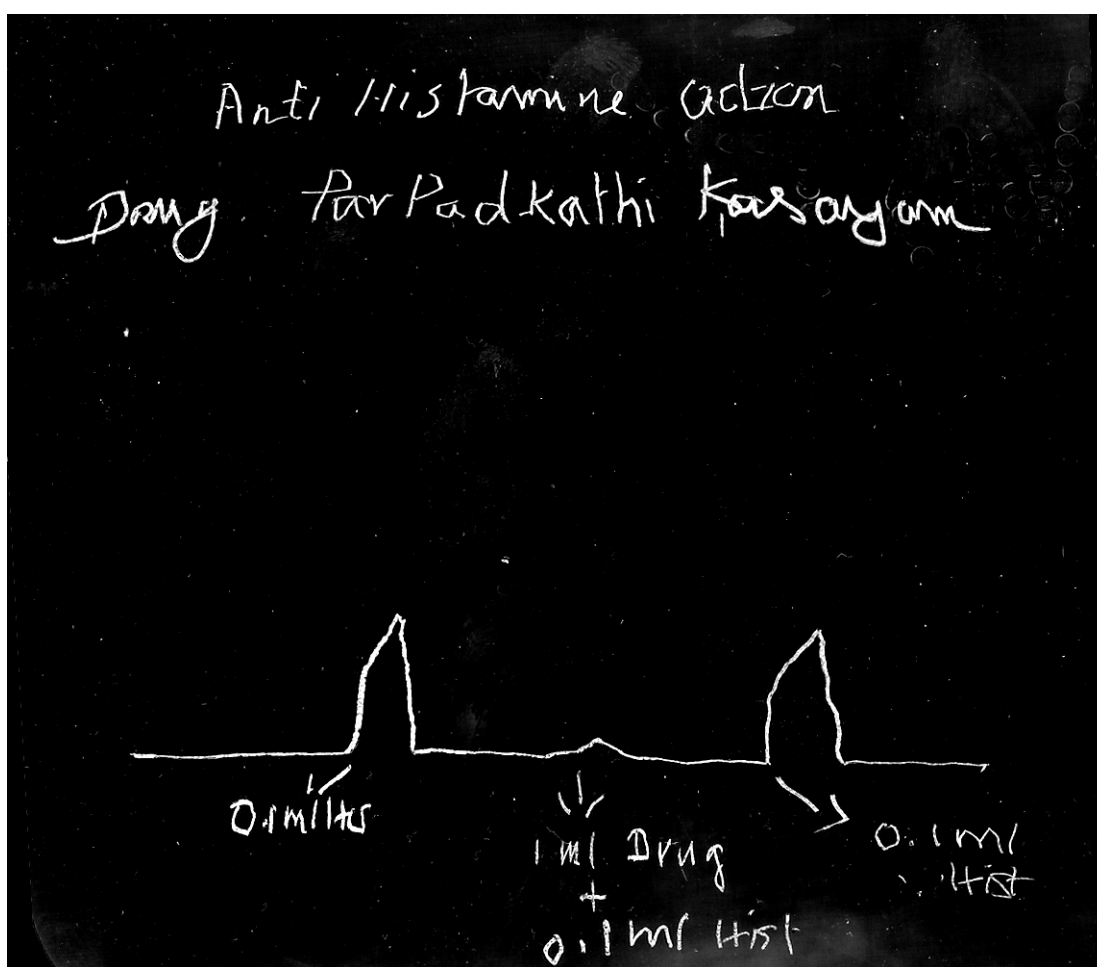 Anti Histamine action
Drug ParPadkathi Kasayam
0.1ml Hist
1 ml Drug
+
0.1 ml Hist
0.1 ml
Hist